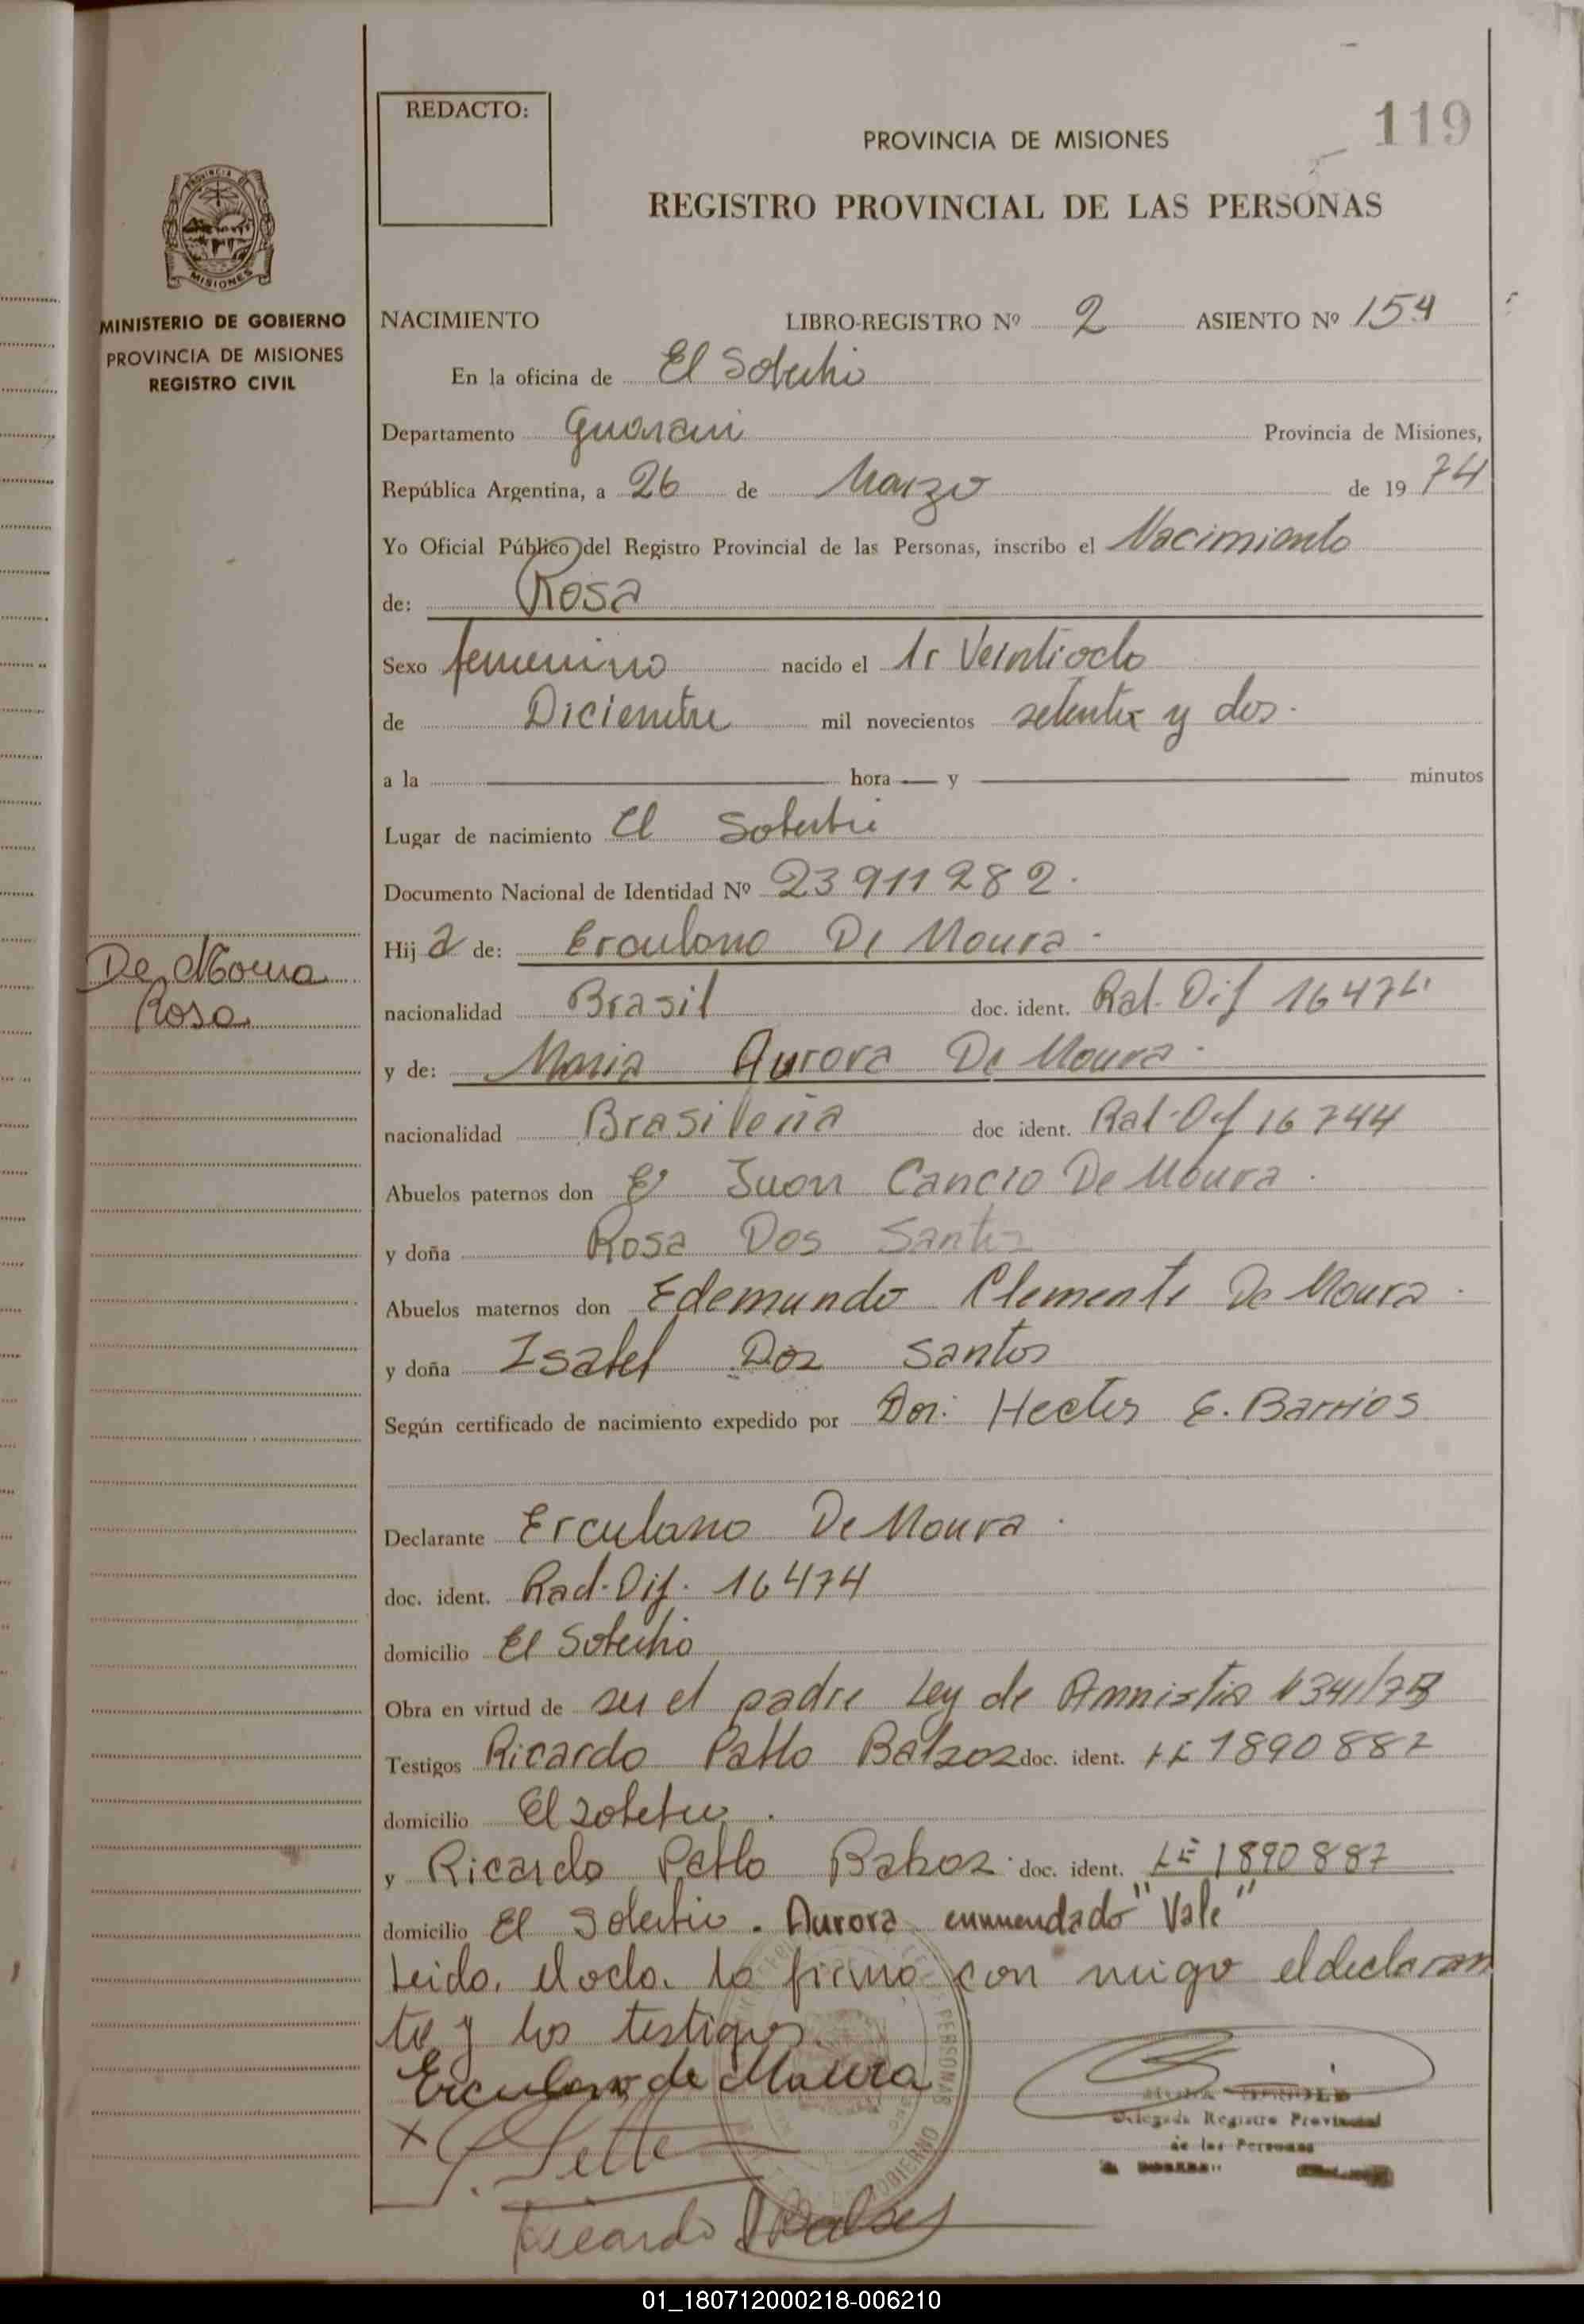 REDACTO:
119
PROVINCIA DE MISIONES
REGISTRO PROVINCIAL DE LAS PERSONAS
PROVINCIA DE
MISIONES
MINISTERIO DE GOBIERNO
PROVINCIA DE MISIONES
REGISTRO CIVIL
NACIMIENTO LIBRO-REGISTRO Nº 2 ASIENTO Nº 154
En la oficina de El Soberbio
Departamento Guarani Provincia de Misiones,
República Argentina, a 26 de Marzo de 19 74
Yo Oficial Público del Registro Provincial de las Personas, inscribo el Nacimiento
de: Rosa
Sexo femenino nacido el Veintiocho
de Diciembre mil novecientos setenta y dos.
a la hora y minutos
Lugar de nacimiento El Soberbio
Documento Nacional de Identidad Nº 23911282.
Hij a de: Erculano De Moura.
De Moura
Rosa
nacionalidad Brasil doc. ident. Rad. Dif 16474
y de: Maria Aurora De Moura.
nacionalidad Brasileña doc ident. Rad. Dif 16744
Abuelos paternos don Juan Cancio De Moura.
y doña Rosa Dos Santos
Abuelos maternos don Edemundo Clemente De Moura.
y doña Isabel Dos Santos
Según certificado de nacimiento expedido por Dor: Hector E. Barrios
Declarante Erculano De Moura.
doc. ident. Rad. Dif. 16474
domicilio El Soberbio
Obra en virtud de ser el padre Ley de Amnistia
Testigos Ricardo Pablo doc. ident. LE 1890887
domicilio El Soberbio.
y Ricardo Pablo doc. ident. LE 1890887
domicilio El Soberbio. Aurora enmendado "Vale"
Leido, el acta. la firma con migo el declaran
te y los testigos
Erculano de Moura
X
Ricardo
Delegada Registro Provincial
de las Personas
PERSONAS
GOBIERNO
01_180712000218-006210